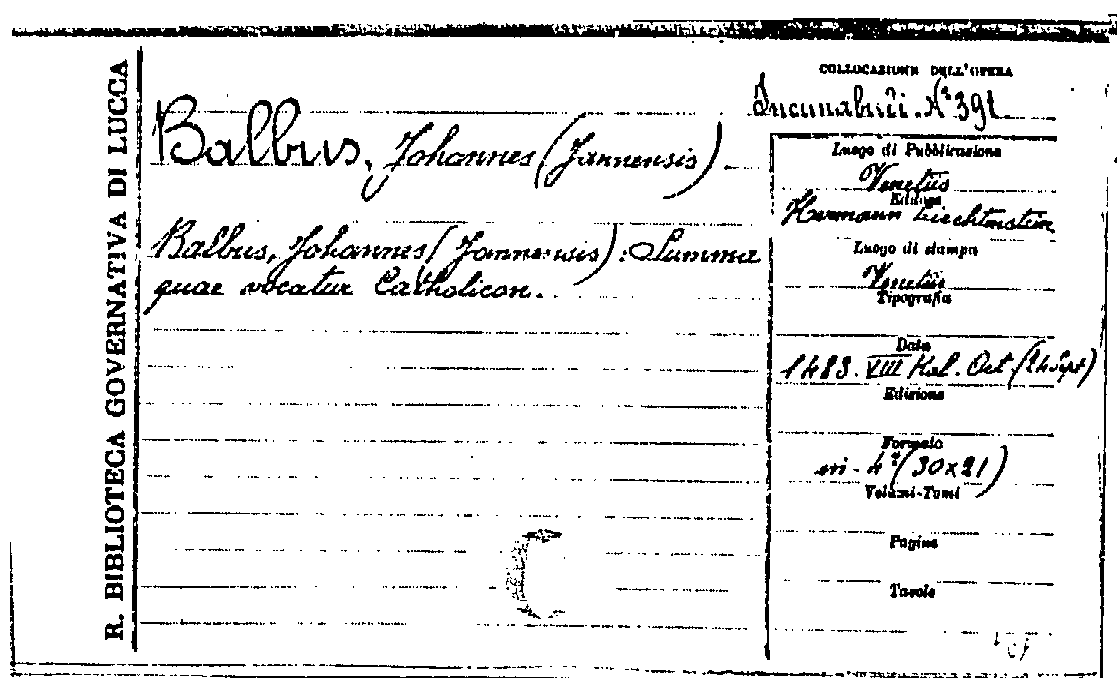 R. BIBLIOTECA GOVERNATIVA DI LUCCA
COLLOCAZIONE DELL'OPERA
Incunabuli. N° 391
Balbus, Johannes (Jannensis)
Balbus, Johannes (Jannensis): Summa
quae vocatur Catholicon.
Luogo di Pubblicazione
Venetiis
Editore
Hermann Liechtenstein
Luogo di stampa
Venetiis
Tipografia
Data
1483. VIII Kal. Oct (24 Sept)
Edizione
Formato
in-4° (30x21)
Volumi-Tomi
Pagine
Tavole